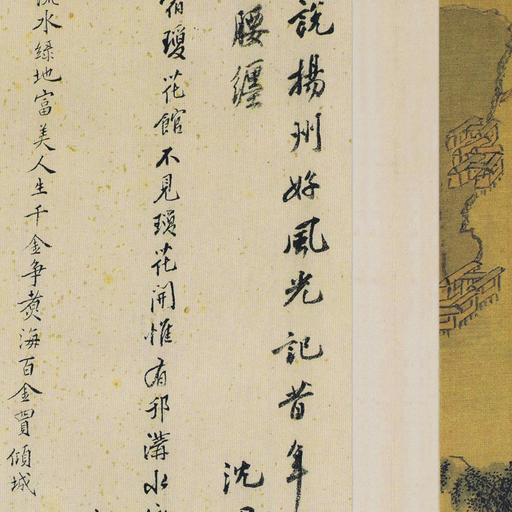 說揚州好風光記昔年
腰纏
沈
宿瓊花館不見瓊花開惟有邗溝水
流水綠地富美人生千金爭賣海百金買傾城